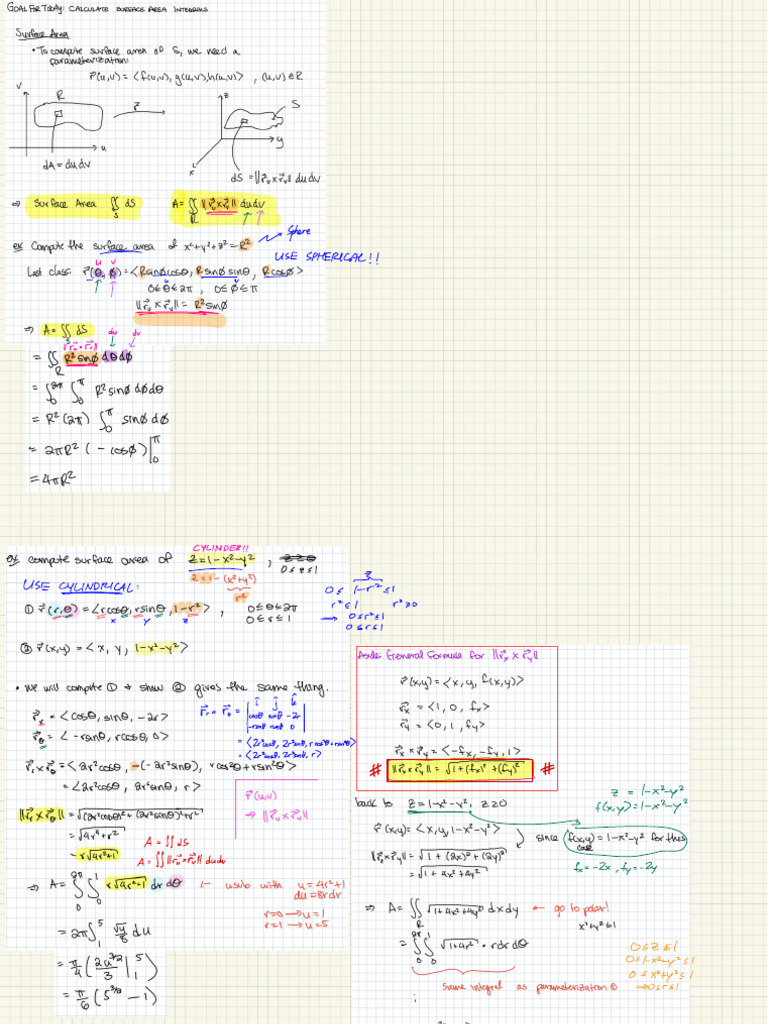 GOAL FOR TODAY: CALCULATE SURFACE AREA INTEGRALS
Surface Area
• To compute surface area of S, we need a
parameterization:
r⃗(u,v) = <f(u,v), g(u,v), h(u,v)> , (u,v) ∈ R
v
R
r⃗
u
dA = dudv
z
S
y
x
dS = ||r⃗u x r⃗v|| dudv
⇒ Surface Area ∬_S dS
A = ∬_R ||r⃗u x r⃗v|| dudv
ex Compute the surface area of x²+y²+z² = R²
Sphere
USE SPHERICAL!!
u v
Last class: r⃗(θ,ϕ) = <Rsinϕcosθ, Rsinϕsinθ, Rcosϕ>
0≤θ≤2π , 0≤ϕ≤π
||r⃗u x r⃗v|| = R²sinϕ
⇒ A = ∬_S dS
du dv
||r⃗u x r⃗v||
= ∬_R R²sinϕ dθdϕ
= ∫₀^2π ∫₀^π R²sinϕ dϕdθ
= R²(2π) ∫₀^π sinϕdϕ
= 2πR² (-cosϕ)|₀^π
= 4πR²
CYLINDER!!
ex compute surface area of z=1-x²-y² , z≥0
0≤z≤1
z = 1-(x²+y²)
r²
USE CYLINDRICAL:
① r⃗(r,θ) = <rcosθ, rsinθ, 1-r²> , 0≤θ≤2π
x y z
0≤r≤1
z
0≤ 1-r² ≤1
r²≤1 r²≥0
→ 0≤r²≤1
0≤r≤1
② r⃗(x,y) = <x, y, 1-x²-y²>
• We will compute ① & show ② gives the same thing.
r⃗r = <cosθ, sinθ, -2r>
r⃗θ = <-rsinθ, rcosθ, 0>
r⃗r x r⃗θ = | i j k |
cosθ sinθ -2r
-rsinθ rcosθ 0
= <2r²cosθ, 2r²sinθ, rcos²θ+rsin²θ>
= <2r²cosθ, 2r²sinθ, r>
r⃗r x r⃗θ = <2r²cosθ, -(-2r²sinθ), rcos²θ+rsin²θ>
= <2r²cosθ, 2r²sinθ, r>
||r⃗r x r⃗θ|| = √(2r²cosθ)²+(2r²sinθ)²+r²
= √4r⁴+r²
= r√4r²+1
r⃗(u,v)
→ ||r⃗u x r⃗v||
A = ∬ dS
A = ∬ ||r⃗u x r⃗v|| dudv
⇒ A = ∫₀^2π ∫₀^1 r√4r²+1 dr dθ
← usub with u=4r²+1
du=8rdr
r=0 → u=1
r=1 → u=5
= 2π ∫₁^5 √u/8 du
= π/4 (2u^3/2 / 3 |₁^5)
= π/6 (5^3/2 - 1)
Aside General Formula for ||r⃗x x r⃗y||
r⃗(x,y) = <x, y, f(x,y)>
r⃗x = <1, 0, fx>
r⃗y = <0, 1, fy>
r⃗x x r⃗y = <-fx, -fy, 1>
# ||r⃗x x r⃗y|| = √1+(fx)²+(fy)² #
back to z=1-x²-y², z≥0
z = 1-x²-y²
f(x,y) = 1-x²-y²
r⃗(x,y) = <x, y, 1-x²-y²>
since f(x,y) = 1-x²-y² for this
case
||r⃗x x r⃗y|| = √1+(2x)²+(2y)²
= √1+4x²+4y²
fx = -2x, fy = -2y
⇒ A = ∬_R √1+4x²+4y² dxdy ← go to polar!
x²+y²≤1
= ∫₀^2π ∫₀^1 √1+4r² • rdrdθ
same integral as parameterization ①
0≤z≤1
0≤1-x²-y²≤1
0≤x²+y²≤1
→ 0≤r≤1